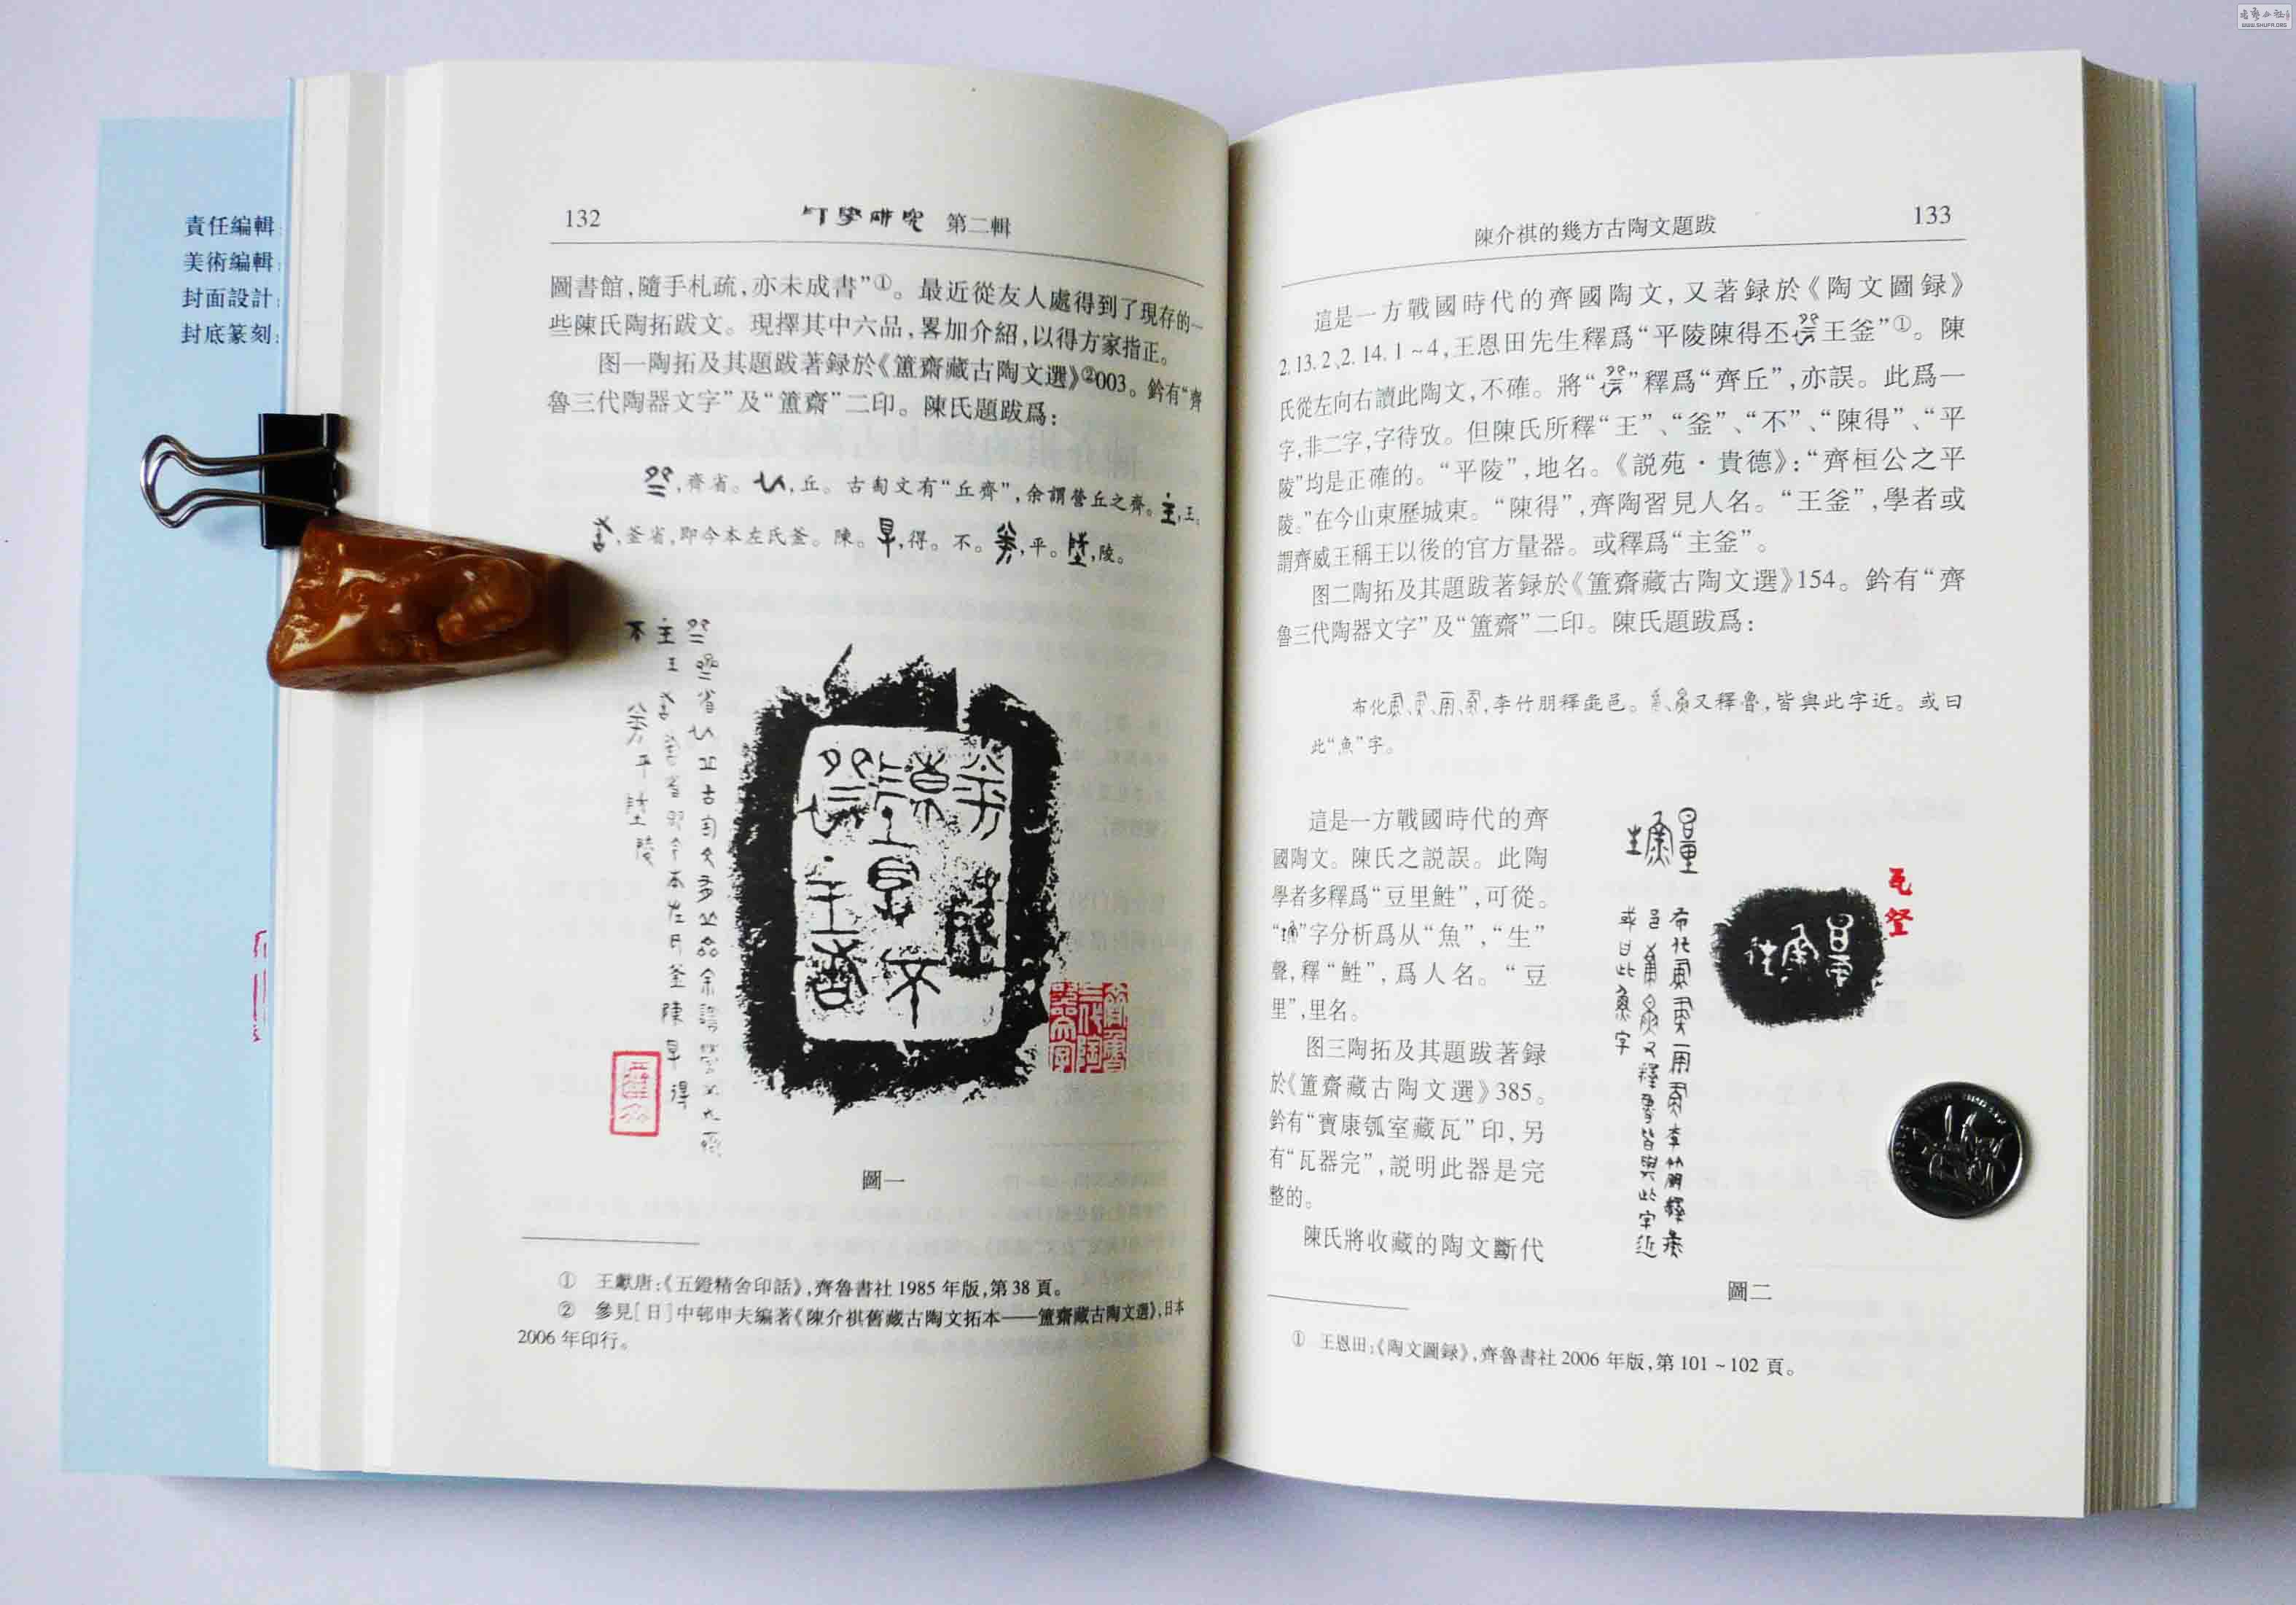 責任編輯:
美術編輯:
封面設計:
封底篆刻:
132
印學研究 第二輯
圖書館,隨手札疏,亦未成書”①。最近從友人處得到了現存的一
些陳氏陶拓跋文。現擇其中六品,畧加介紹,以得方家指正。
图一陶拓及其題跋著録於《簠齋藏古陶文選》②003。鈐有“齊
魯三代陶器文字”及“簠齋”二印。陳氏題跋爲:
,齊省。,丘。古匋文有“丘齊”,余謂營丘之齊。,王。
,釜省,即今本左氏釜。陳。,得。不。,平。,陵。
圖一
① 王獻唐:《五鐙精舍印話》,齊魯書社1985年版,第38頁。
② 參見[日]中邨申夫編著《陳介祺舊藏古陶文拓本——簠齋藏古陶文選》,日本
2006年印行。
陳介祺的幾方古陶文題跋
133
這是一方戰國時代的齊國陶文,又著録於《陶文圖録》
2.13.2、2.14.1~4,王恩田先生釋爲“平陵陳得丕王釜”①。陳
氏從左向右讀此陶文,不確。將“”釋爲“齊丘”,亦誤。此爲一
字,非二字,字待攷。但陳氏所釋“王”、“釜”、“不”、“陳得”、“平
陵”均是正確的。“平陵”,地名。《説苑·貴德》:“齊桓公之平
陵。”在今山東歷城東。“陳得”,齊陶習見人名。“王釜”,學者或
謂齊威王稱王以後的官方量器。或釋爲“主釜”。
图二陶拓及其題跋著録於《簠齋藏古陶文選》154。鈐有“齊
魯三代陶器文字”及“簠齋”二印。陳氏題跋爲:
布化、、、,李竹朋釋邑。、又釋魯,皆與此字近。或曰
此“魚”字。
這是一方戰國時代的齊
國陶文。陳氏之説誤。此陶
學者多釋爲“豆里鮏”,可從。
“”字分析爲从“魚”,“生”
聲,釋“鮏”,爲人名。“豆
里”,里名。
图三陶拓及其題跋著録
於《簠齋藏古陶文選》385。
鈐有“寶康瓠室藏瓦”印,另
有“瓦器完”,説明此器是完
整的。
陳氏將收藏的陶文斷代
圖二
① 王恩田:《陶文圖録》,齊魯書社2006年版,第101~102頁。
WWW.SHUFA.ORG